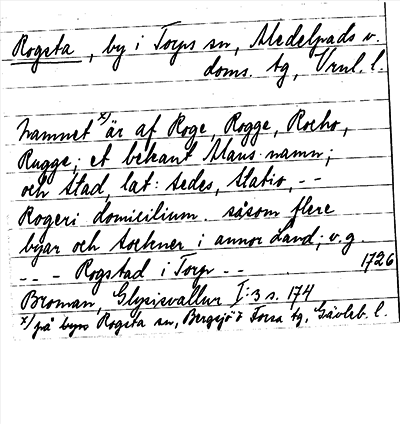 Rogsta, by i Torps sn, Medelpads v.
doms. tg, Vnl. l.
Namnet x) är af Roge, Rogge, Rocho,
Rugge; et bekant Mans namn;
och Stad, lat: sedes, Statio, - -
Rogeri domicilium. såsom flere
byar och Sochner i annor Land; v. g
- - - Rogstad i Torp - - 1726
Broman, Glysisvallur I: 3 s. 174
x) på byn Rogsta sn, Bergsjö o Forsa tg, Gävleb. l.